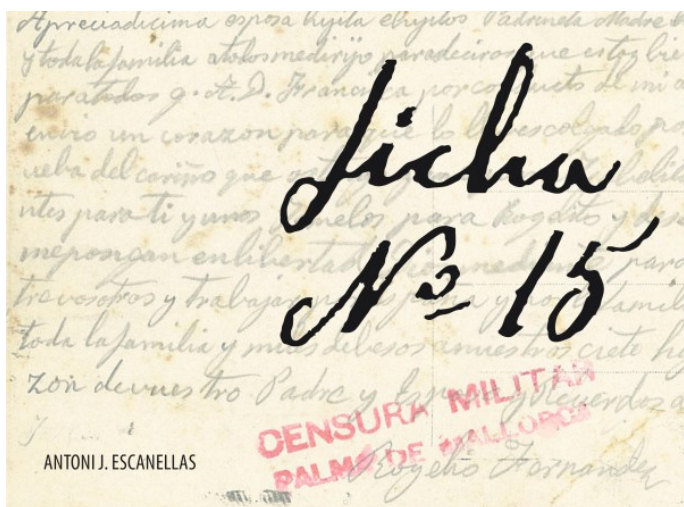 Apreciadicima esposa hijita ehijitos Padrineta Madre
y toda la familia atolos medirijo paradeciros que estoy bie
para todos g. A. D. Francisca por conducto de mi
envio un corazon para que lo lleves colgado por
ueba del cariño que
ntes para ti y unos para Rogelito y
mepongan en libertad para
tre vosotros y trabajar y por famili
toda la familia y miles debesos anuestros ciete hi
zon de vues tro Padre y Esposo y Recuerdos a
ficha
Nº 15
CENSURA MILITAR
PALMA DE MALLORCA
Rogelio Fernandez
ANTONI J. ESCANELLAS